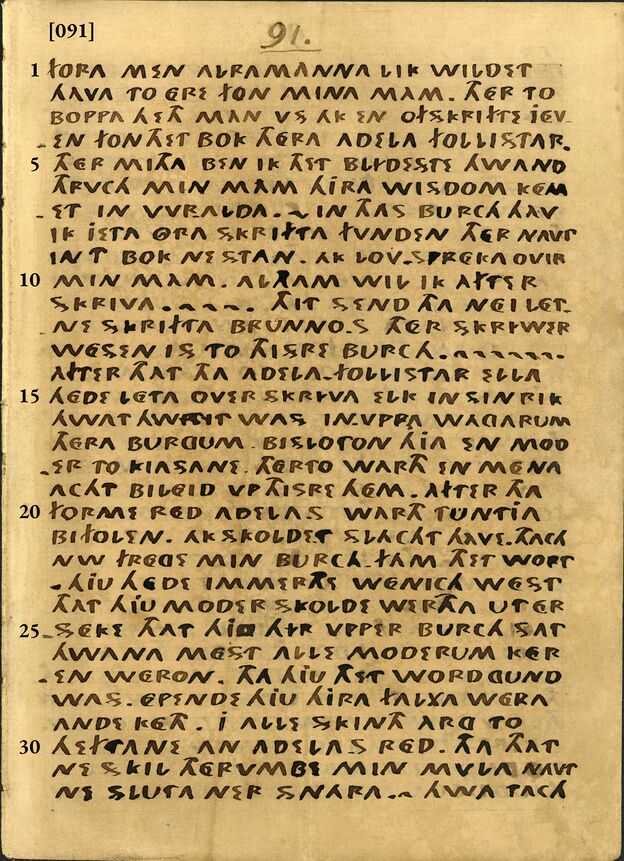 [091]
91.
1 FORA MEN ALRAMANNA LIK WILDET
HAVA TO ERE FON MINA MAM. THER TO
BOPPA HETH MAN VS AK EN OFSKRIFTE JEV
-EN FON THET BOK THERA ADELA FOLLISTAR.
5 THER MITHA BEN IK THET BLIDESTE HWAND
THRVCH MIN MAM HIRA WISDOM KEM
-ET IN VVRALDA.~IN THAS BURCH HAV
IK JETA ORA SKRIFTA FUNDEN THER NAVT
IN T BOK NE STAN. AK LOV-SPREKA OVIR
10 MIN MAM. ALTHAM WIL IK AFTER
SKRIVA.~~~~. THIT SEND THA NEI LET
-NE SKRIFTA BRUNNO.S THER SKRIWER
WESEN IS TO THISRE BURCH.~~~~~~.
AFTER THAT THA ADELA-FOLLISTAR ELLA
15 HEDE LETA OVER SKRIVA ELK IN SIN RIK
HWAT HWRIT WAS IN.VPPA WAGARUM
THERA BURGUM. BISLOTON HJA EN MOD
-ER TO KIASANE. THERTO WARTH EN MENA
ACHT BILEID VP THISRE HEM. AFTER THA
20 FORME RED ADELAS WARTH TUNTIA
BIFOLEN. AK SKOLDET SLACHT HAVE.THACH
NW FREGE MIN BURCH-FAM THET WORT
-HJU HEDE IMMERTHE WENICH WEST
THAT HJU MODER SKOLDE WERTHA UT ER
25 -SEKE THAT HJU HIR VPPER BURCH SAT
HWANA MEST ALLE MODERUM KER
-EN WERON. THA HJU THET WORD GUND
WAS. EPENDE HJU HIRA FALXA WERA
ANDE KETH. I ALLE SKINTH ARG TO
30 HEFTANE AN ADELAS RED. THA THAT
NE SKIL THERVMBE MIN MVLA NAVT
NE SLUTA NER SNARA.~ HWA TACH